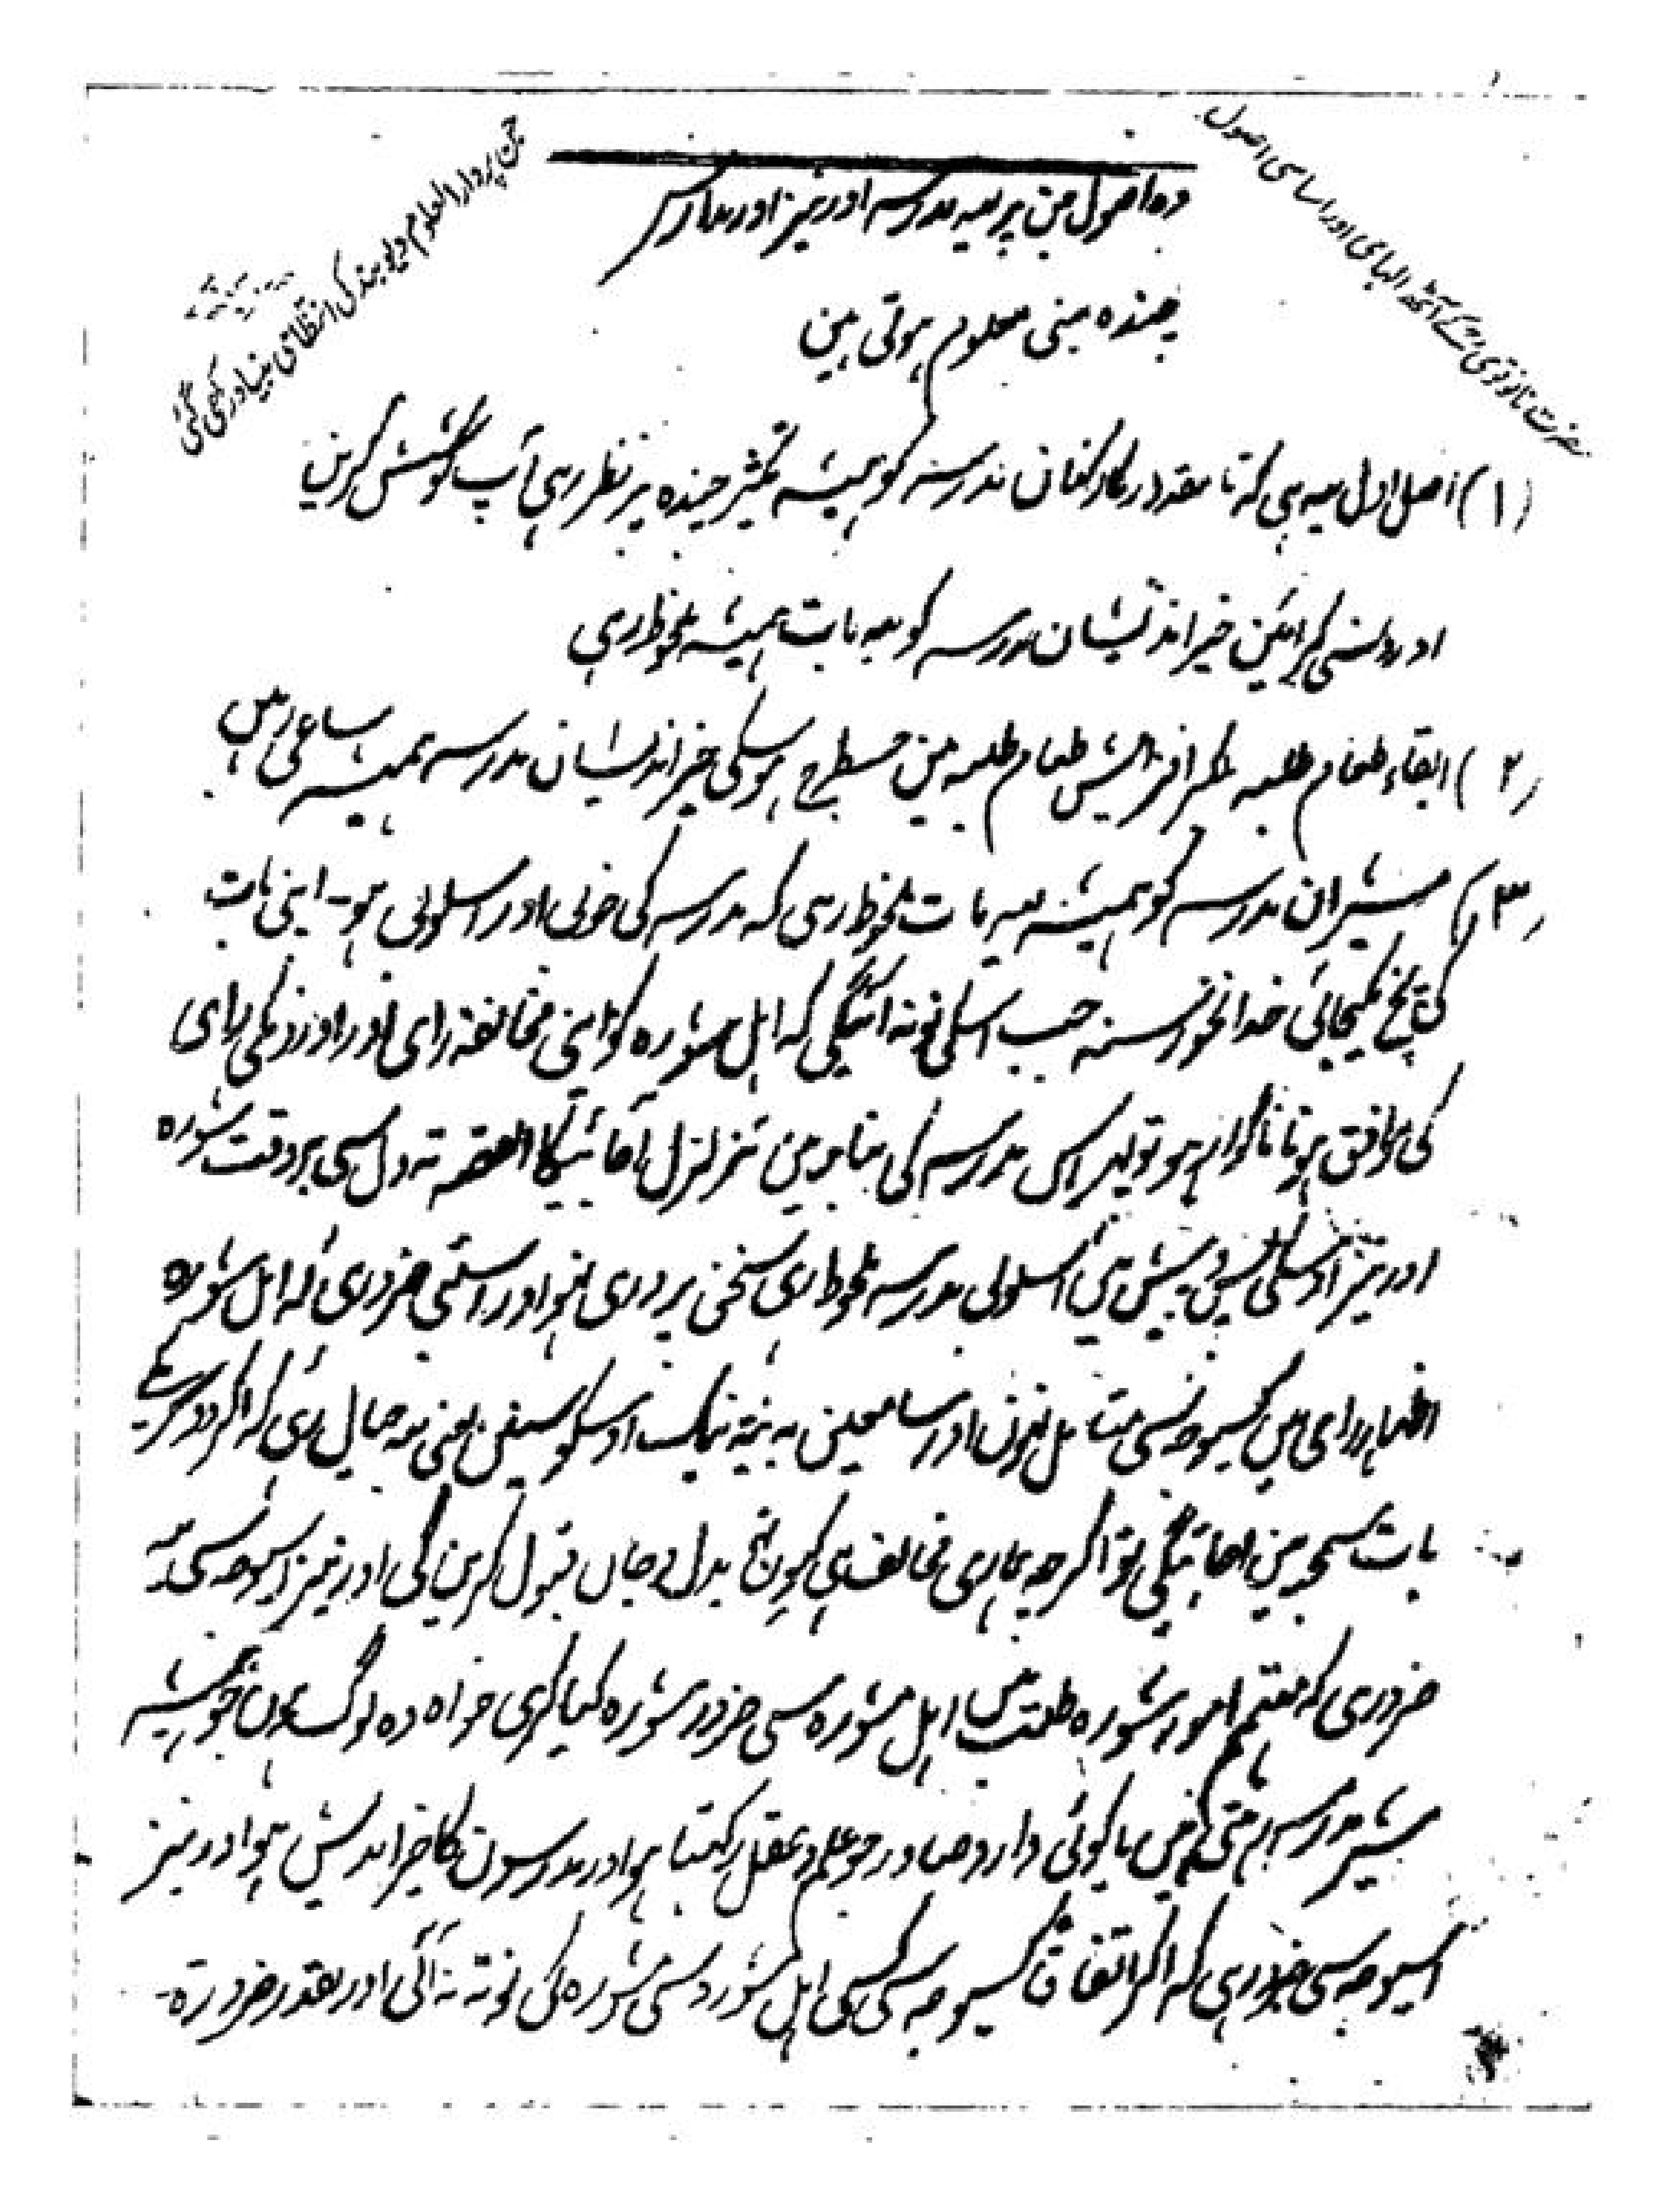 حضرت نانوتویؒ کے آٹھ الہامی اور اساسی اصول
جن پر دارالعلوم دیوبند کی انتظامی بنیاد رکھی گئی
وہ اصول جن پر یہ مدرسہ اور نیز اور مدارس
چندہ مبنی معلوم ہوتی ہین
(۱) اصل اول یہ ہی کہ تا مقدور کارکنان مدرسہ کو ہمیشہ تکثیر چندہ پر نظر رہی آپ کوشش کرین
اورونسی کرائین خیر اندیشان مدرسہ کو یہ بات ہمیشہ ملحوظ رہی
(۲) ابقاء طعام طلبہ بلکہ افزایش طعام طلبہ مین جسطرح ہوسکی خیر اندیشان مدرسہ ہمیشہ ساعی رہین
(۳) مشیران مدرسہ کو ہمیشہ یہ بات ملحوظ رہی کہ مدرسہ کی خوبی اور اسلوبی ہو۔ اپنی بات
کی پچ نکیجائی خدانخواستہ جب اسکی نوبۃ آئیگی کہ اہل مشورہ کو اپنی مخالفۃ رای اور اورونکی رای
کی موافق ہونا ناگوار ہو تو پھر اس مدرسہ کی بنا مین تزلزل آجائیگا القصہ تہ دل سی بروقت مشورہ
اور نیز اوسکی پس و پیش مین اسلوبی مدرسہ ملحوظ رہی سخن پروری نہو اور اسلئی ضروری کہ اہل مشورہ
اظہار رای مین کسیوجہسی متامل نہون اور سامعین بہ نیۃ نیک اوسکو سنین یعنی یہ خیال رہی کہ اگر دوسریکی
بات سمجہ مین آجائیگی تو اگرچہ ہماری مخالف ہی کیون نہو بدل و جان قبول کرین گی اور نیز اسیوجہ سی یہ
ضروری کہ مہتمم امور مشورہ طلب مین اہل مشورہ سی ضرور مشورہ کیا کری خواہ وہ لوگ ہون جو ہمیشہ
مشیر مدرسہ رہتی ہین یا کوئی وارد و صادر جو علم و عقل رکہتا ہو اور مدرسون کا خیر اندیش ہو اور نیز
اسیوجہ سی ضرور ہی کہ اگر اتفاقاً کسیوجہ سی کسی اہل مشورہ سی مشورہ کی نوبۃ نہ آئی اور بقدر ضرورۃ